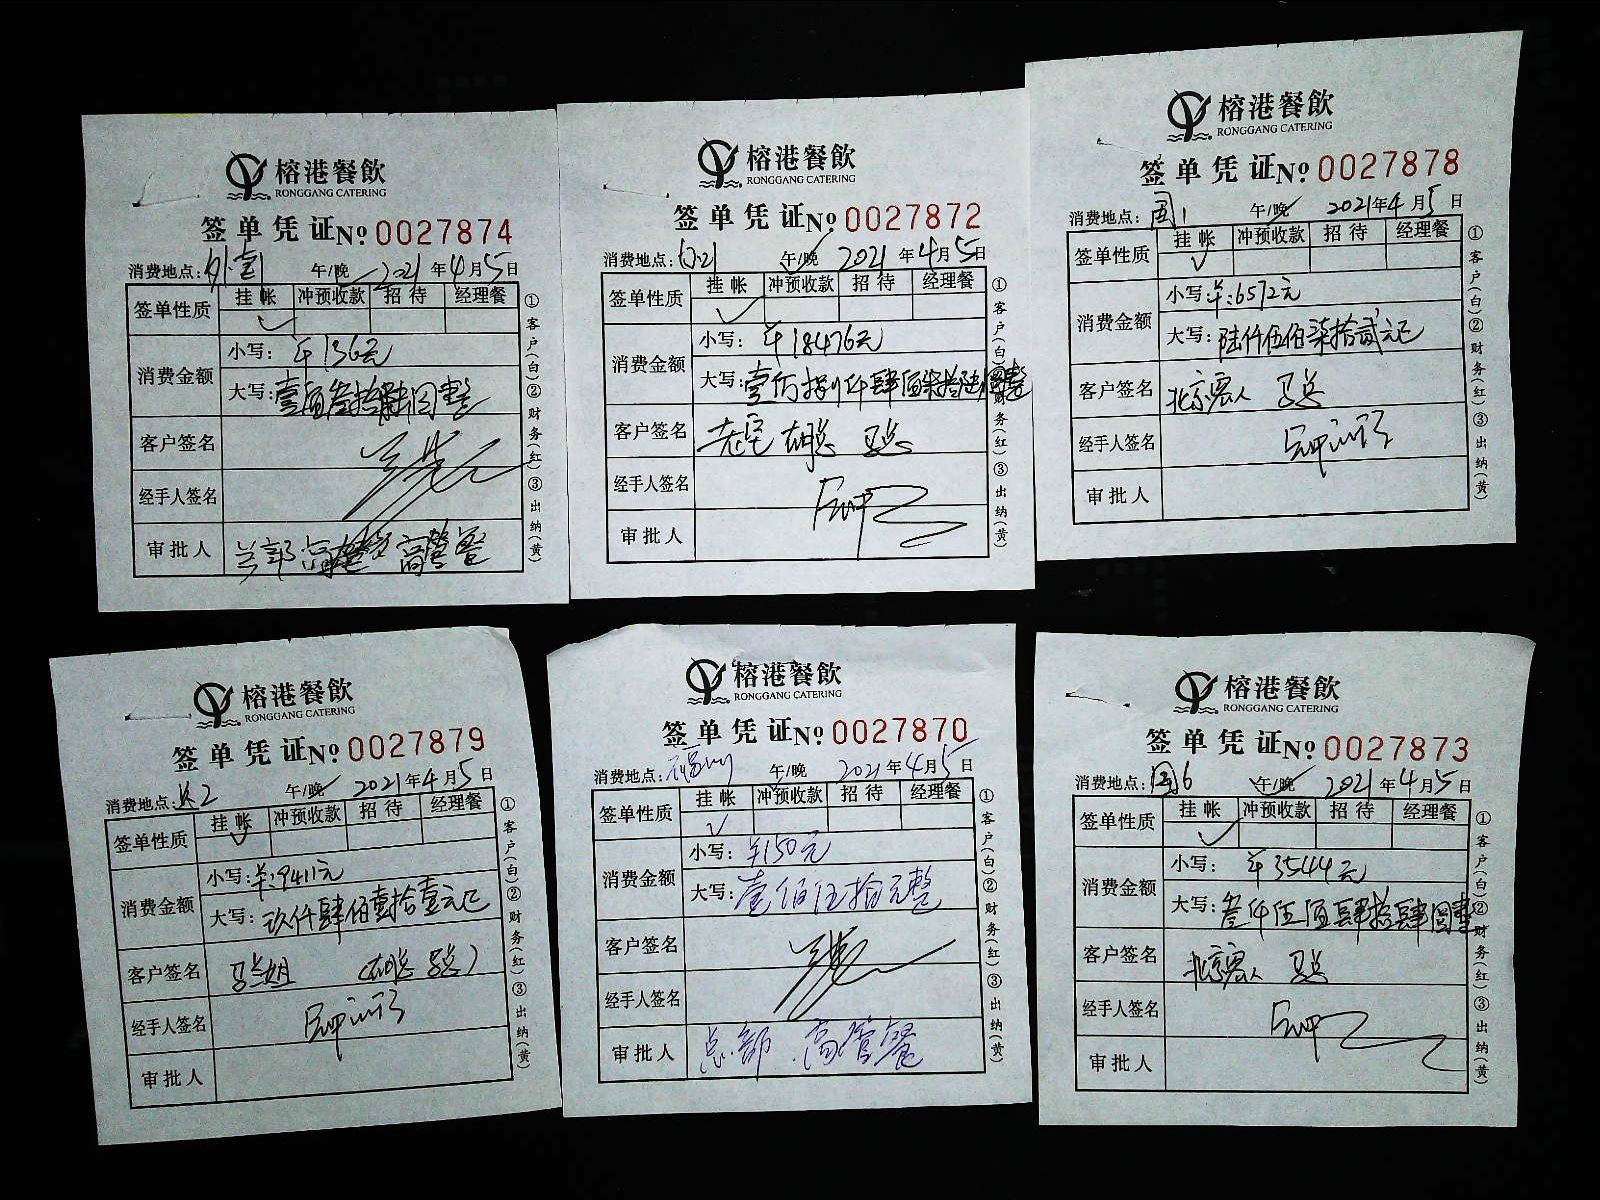 榕港餐飲
RONGGANG CATERING
签单凭证 No 0027874
消费地点: 午/晚 2021年4月5日
签单性质 挂帐 冲预收款 招待 经理餐
✓
消费金额 小写: ¥136元
大写: 壹佰叁拾陆圆整
客户签名
经手人签名
审批人 高管餐
①客户(白)②财务(红)③出纳(黄)
榕港餐飲
RONGGANG CATERING
签单凭证 No 0027872
消费地点: 午/晚 2021年4月5日
签单性质 挂帐 冲预收款 招待 经理餐
✓
消费金额 小写: ¥18476元
大写: 壹万捌仟肆佰柒拾陆圆整
客户签名 胡总 马总
经手人签名
审批人
①客户(白)②财务(红)③出纳(黄)
榕港餐飲
RONGGANG CATERING
签单凭证 No 0027878
消费地点: 午/晚 2021年4月5日
签单性质 挂帐 冲预收款 招待 经理餐
✓
消费金额 小写: ¥:6572元
大写: 陆仟伍佰柒拾贰元正
客户签名 北京客人 马总
经手人签名
审批人
①客户(白)②财务(红)③出纳(黄)
榕港餐飲
RONGGANG CATERING
签单凭证 No 0027879
消费地点: 午/晚 2021年4月5日
签单性质 挂帐 冲预收款 招待 经理餐
✓
消费金额 小写: ¥:9411元
大写: 玖仟肆佰壹拾壹元正
客户签名 马兰姐 (胡总 马总)
经手人签名
审批人
①客户(白)②财务(红)③出纳(黄)
榕港餐飲
RONGGANG CATERING
签单凭证 No 0027870
消费地点: 午/晚 2021年4月5日
签单性质 挂帐 冲预收款 招待 经理餐
✓
消费金额 小写: ¥150元
大写: 壹佰伍拾元整
客户签名
经手人签名
审批人 总部 高管餐
①客户(白)②财务(红)③出纳(黄)
榕港餐飲
RONGGANG CATERING
签单凭证 No 0027873
消费地点: 午/晚 2021年4月5日
签单性质 挂帐 冲预收款 招待 经理餐
✓
消费金额 小写: ¥3544元
大写: 叁仟伍佰肆拾肆圆整
客户签名 北京客人 马总
经手人签名
审批人
①客户(白)②财务(红)③出纳(黄)